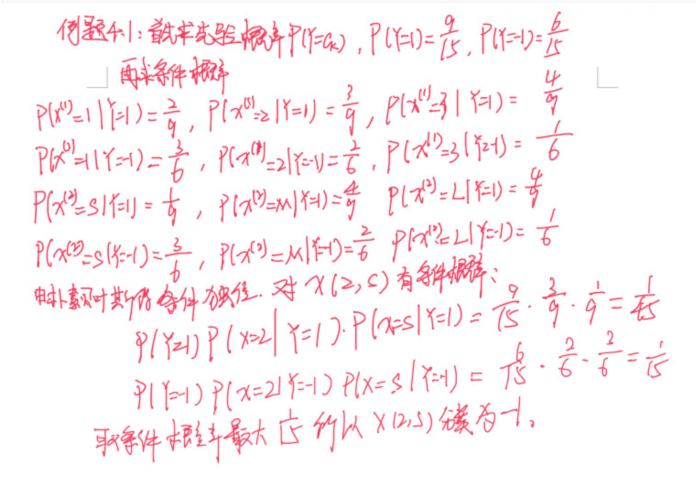 例题4.1：首先求先验概率P(Y=Ck)，P(Y=1)=9/15，P(Y=-1)=6/15
再求条件概率
P(X⁽¹⁾=1|Y=1)=2/9，P(X⁽¹⁾=2|Y=1)=3/9，P(X⁽¹⁾=3|Y=1)=4/9
P(X⁽¹⁾=1|Y=-1)=3/6，P(X⁽¹⁾=2|Y=-1)=2/6，P(X⁽¹⁾=3|Y=-1)=1/6
P(X⁽²⁾=S|Y=1)=1/9，P(X⁽²⁾=M|Y=1)=4/9 P(X⁽²⁾=L|Y=1)=4/9
P(X⁽²⁾=S|Y=-1)=3/6，P(X⁽²⁾=M|Y=-1)=2/6 P(X⁽²⁾=L|Y=-1)=1/6
由朴素贝叶斯 条件独立．对X(2,S)有条件概率：
P(Y=1)P(X=2|Y=1)·P(X=S|Y=1)=9/15·3/9·1/9=1/45
P(Y=-1)P(X=2|Y=-1)P(X=S|Y=-1)=6/15·2/6·3/6=1/15
取条件概率最大1/15 所以X(2,S)分类为-1。